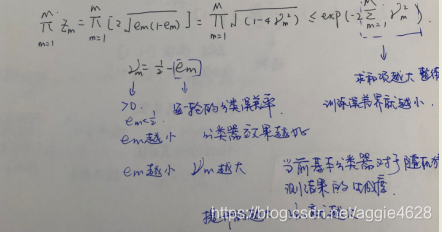 $\prod_{m=1}^{M} Z_m = \prod_{m=1}^{M} [2\sqrt{e_m(1-e_m)}] = \prod_{m=1}^{M} \sqrt{(1-4\gamma_m^2)} \le \exp(-2\sum_{m=1}^{M} \gamma_m^2)$
$\gamma_m = \frac{1}{2} - e_m$
求和项越大 整体
>0. 每一轮的分类误差率 训练误差界就越小
$e_m < \frac{1}{2}$
em越小 分类器效果越好
em越小 γm越大 当前基本分类器对于随机
测结果的
https://blog.csdn.net/aggie4628